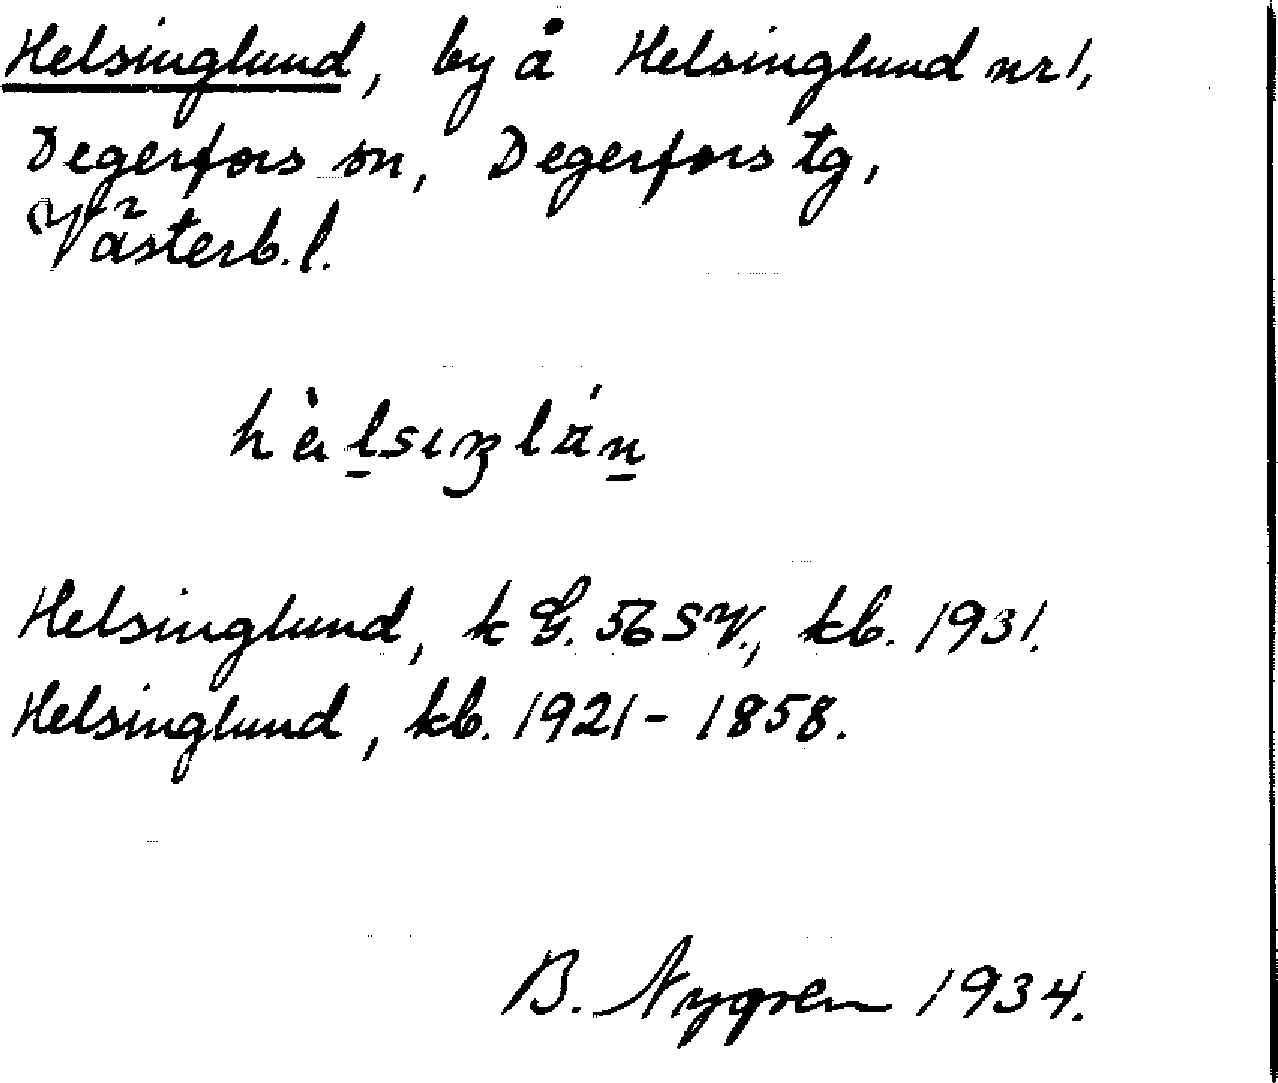 Helsinglund, by å Helsinglund nr 1,
Degerfors sn, Degerfors tg,
Västerb. l.
Helsinglund, k G. 56 SV., kb. 1931.
Helsinglund, kb. 1921 - 1858.
B. Nygren 1934.